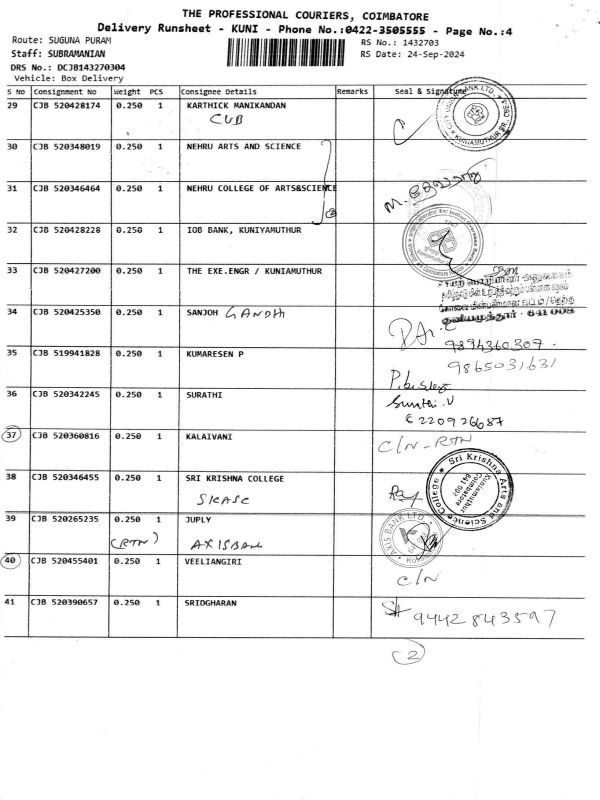 THE PROFESSIONAL COURIERS, COIMBATORE
Delivery Runsheet - KUNI - Phone No.:0422-3505555 - Page No.:4
Route: SUGUNA PURAM
RS No.: 1432703
Staff: SUBRAMANIAN
RS Date: 24-Sep-2024
DRS No.: DCJB143270304
Vehicle: Box Delivery
S No Consignment No Weight PCS Consignee Details Remarks Seal & Signature
29 CJB 520428174 0.250 1 KARTHICK MANIKANDAN
CUB
30 CJB 520348019 0.250 1 NEHRU ARTS AND SCIENCE
31 CJB 520346464 0.250 1 NEHRU COLLEGE OF ARTS&SCIENCE
32 CJB 520428228 0.250 1 IOB BANK, KUNIYAMUTHUR
33 CJB 520427200 0.250 1 THE EXE.ENGR / KUNIAMUTHUR
குனியமுத்தூர் - 641 008
34 CJB 520425350 0.250 1 SANJOH GANDHI
9894360307.
35 CJB 519941828 0.250 1 KUMARESEN P
9865031631
36 CJB 520342245 0.250 1 SURATHI
Surathi.V
E 220926687
37 CJB 520360816 0.250 1 KALAIVANI
C/N-RTN
38 CJB 520346455 0.250 1 SRI KRISHNA COLLEGE
SKASC
Sri Krishna Arts and Science College
Kuniamuthur
Coimbatore
641 008
39 CJB 520265235 0.250 1 JUPLY
(RTN) AXISBANK
AXIS BANK LTD.
40 CJB 520455401 0.250 1 VEELIANGIRI
C/N
41 CJB 520390657 0.250 1 SRIDGHARAN
9442843597
2